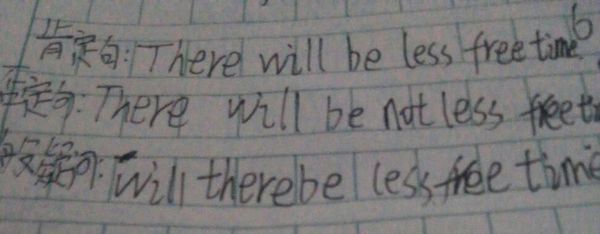 肯定句: There will be less free time
定句: There will be not less free
疑问: Will there be less free time